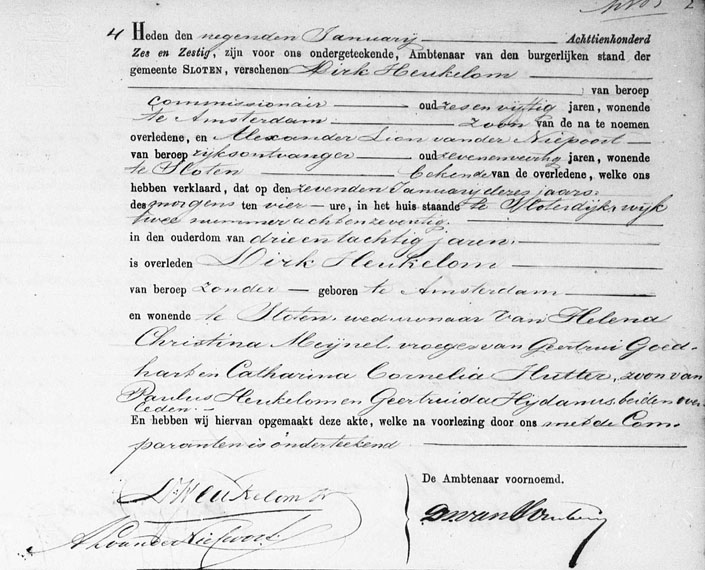 4 Heden den negenden January Achttienhonderd
Zes en Zestig, zijn voor ons ondergeteekende, Ambtenaar van den burgerlijken stand der
gemeente SLOTEN, verschenen Dirk Heukelom
van beroep
commissionair oud zesenvijftig jaren, wonende
te Amsterdam zoon van de na te noemen
overledene, en Alexander Lion van der Niepoort
van beroep rijksontvanger oud zevenenveertig jaren, wonende
te Sloten bekende van de overledene, welke ons
hebben verklaard, dat op den zevenden January dezes jaars
des morgens ten vier ure, in het huis staande te Sloterdijk wijk
twee nummer achtenzeventig
in den ouderdom van drieentachtig jaren
is overleden Dirk Heukelom
van beroep zonder geboren te Amsterdam
en wonende te Sloten weduwnaar van Helena
Christina Meijnel, vroeger van Geertrui Goed-
hart en Catharina Cornelia Hutter, zoon van
Paulus Heukelom en Geertruida Hijdanus, beiden over-
leden.
En hebben wij hiervan opgemaakt deze akte, welke na voorlezing door ons met de Com-
paranten is onderteekend
De Ambtenaar voornoemd.
D. Heukelom Jr
A L van der Niepoort